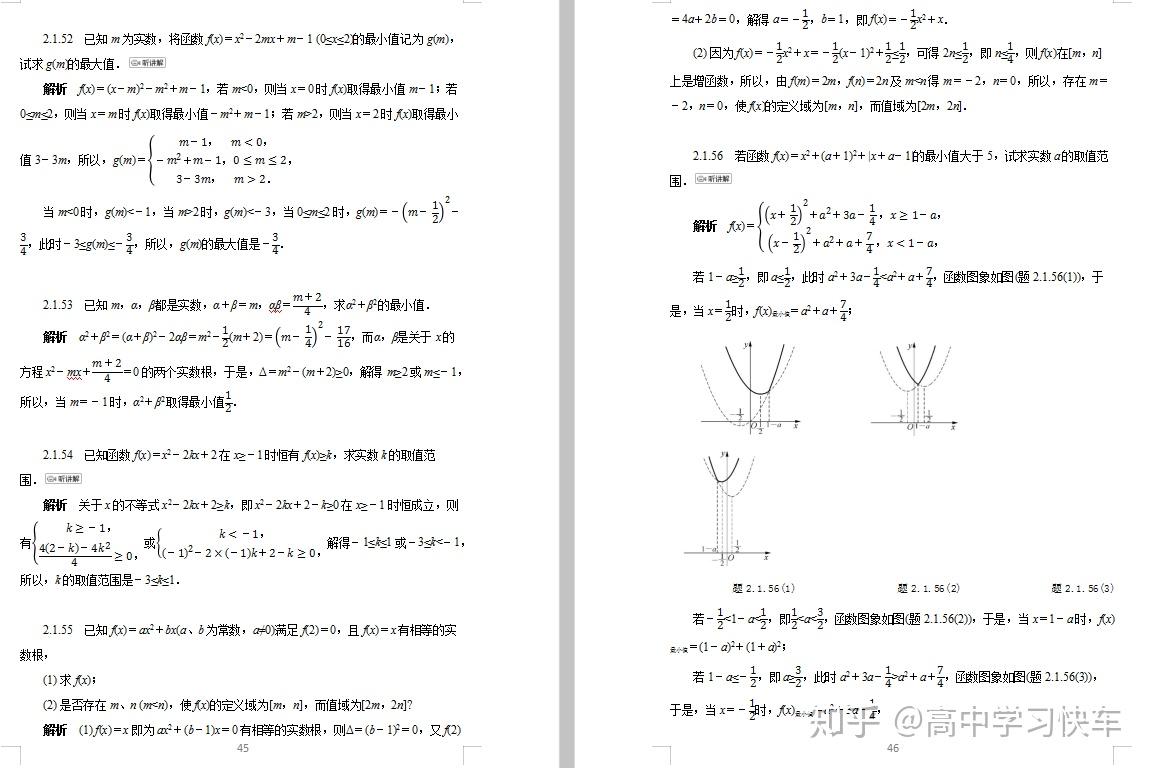 2.1.52 已知 m 为实数，将函数 f(x)=x²-2mx+m-1 (0≤x≤2)的最小值记为 g(m)，
试求 g(m)的最大值． 听讲解
解析 f(x)=(x-m)²-m²+m-1，若 m<0，则当 x=0 时 f(x)取得最小值 m-1；若
0≤m≤2，则当 x=m 时 f(x)取得最小值-m²+m-1；若 m>2，则当 x=2 时 f(x)取得最小
值 3-3m，所以，g(m)={m-1， m<0，
-m²+m-1，0≤m≤2，
3-3m， m>2．
当 m<0 时，g(m)<-1，当 m>2 时，g(m)<-3，当 0≤m≤2 时，g(m)=-(m-1/2)²-
3/4，此时-3≤g(m)≤-3/4，所以，g(m)的最大值是-3/4．
2.1.53 已知 m，α，β都是实数，α+β=m，αβ=(m+2)/4，求α²+β²的最小值．
解析 α²+β²=(α+β)²-2αβ=m²-1/2(m+2)=(m-1/4)²-17/16，而α，β是关于 x 的
方程 x²-mx+(m+2)/4=0 的两个实数根，于是，Δ=m²-(m+2)≥0，解得 m≥2 或 m≤-1，
所以，当 m=-1 时，α²+β²取得最小值1/2．
2.1.54 已知函数 f(x)=x²-2kx+2 在 x≥-1 时恒有 f(x)≥k，求实数 k 的取值范
围． 听讲解
解析 关于 x 的不等式 x²-2kx+2≥k，即 x²-2kx+2-k≥0 在 x≥-1 时恒成立，则
有{k≥-1，
(4(2-k)-4k²)/4≥0，或{k<-1，
(-1)²-2×(-1)k+2-k≥0，解得-1≤k≤1 或-3≤k<-1，
所以，k 的取值范围是-3≤k≤1．
2.1.55 已知 f(x)=ax²+bx(a、b 为常数，a≠0)满足 f(2)=0，且 f(x)=x 有相等的实
数根，
(1) 求 f(x)；
(2) 是否存在 m、n (m<n)，使 f(x)的定义域为[m，n]，而值域为[2m，2n]？
解析 (1) f(x)=x 即为 ax²+(b-1)x=0 有相等的实数根，则Δ=(b-1)²=0，又 f(2)
45
=4a+2b=0，解得 a=-1/2，b=1，即 f(x)=-1/2x²+x．
(2) 因为 f(x)=-1/2x²+x=-1/2(x-1)²+1/2≤1/2，可得 2n≤1/2，即 n≤1/4，则 f(x)在[m，n]
上是增函数，所以，由 f(m)=2m，f(n)=2n 及 m<n 得 m=-2，n=0，所以，存在 m=
-2，n=0，使 f(x)的定义域为[m，n]，而值域为[2m，2n]．
2.1.56 若函数 f(x)=x²+(a+1)²+|x+a-1|的最小值大于 5，试求实数 a 的取值范
围． 听讲解
解析 f(x)={(x+1/2)²+a²+3a-1/4，x≥1-a，
(x-1/2)²+a²+a+7/4，x<1-a，
若 1-a≥1/2，即 a≤1/2，此时 a²+3a-1/4<a²+a+7/4，函数图象如图(题 2.1.56(1))，于
是，当 x=1/2时，f(x)最小值=a²+a+7/4；
y
-1/2
O 1/2 1-a x
y
-1/2 1/2
O 1-a x
y
1-a 1/2
-1/2 O x
题 2.1.56(1) 题 2.1.56(2) 题 2.1.56(3)
若-1/2<1-a<1/2，即1/2<a<3/2，函数图象如图(题 2.1.56(2))，于是，当 x=1-a 时，f(x)
最小值=(1-a)²+(1+a)²；
若 1-a≤-1/2，即 a≥3/2，此时 a²+3a-1/4>a²+a+7/4，函数图象如图(题 2.1.56(3))，
于是，当 x=-1/2时，f(x)最小值=a²+3a-1/4，
知乎 @高中学习快车
46